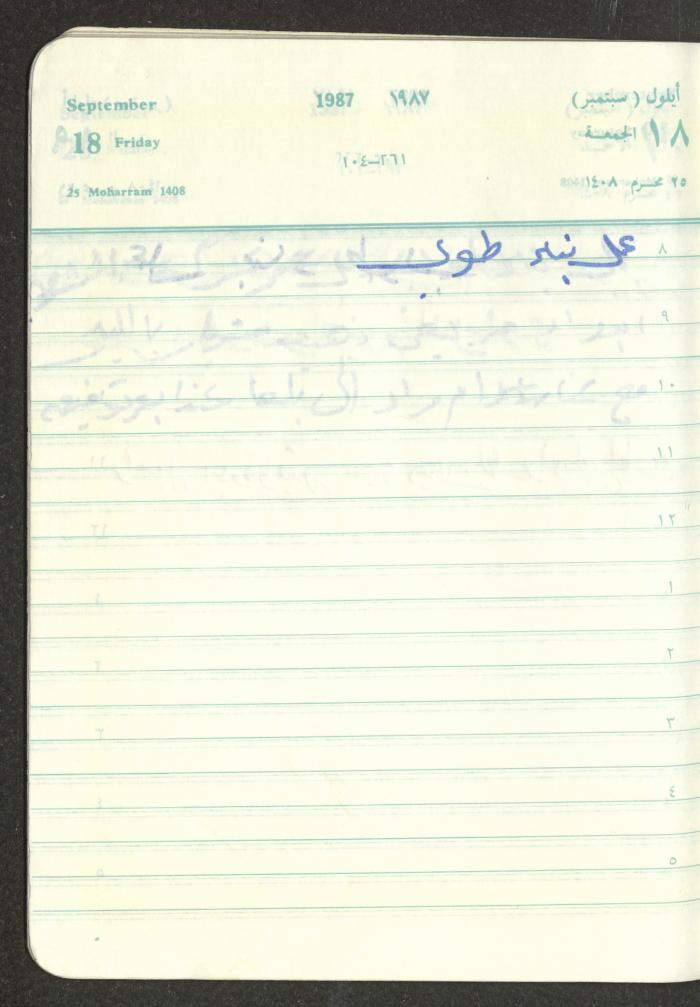 September 1987 ١٩٨٧ أيلول (سبتمبر)
18 Friday ١٨ الجمعـة
٢٦١-١٠٤
25 Moharram 1408 ٢٥ محـرم ١٤٠٨
٨ عمل بناء طوب
٩
١٠
١١
١٢
١
٢
٣
٤
٥